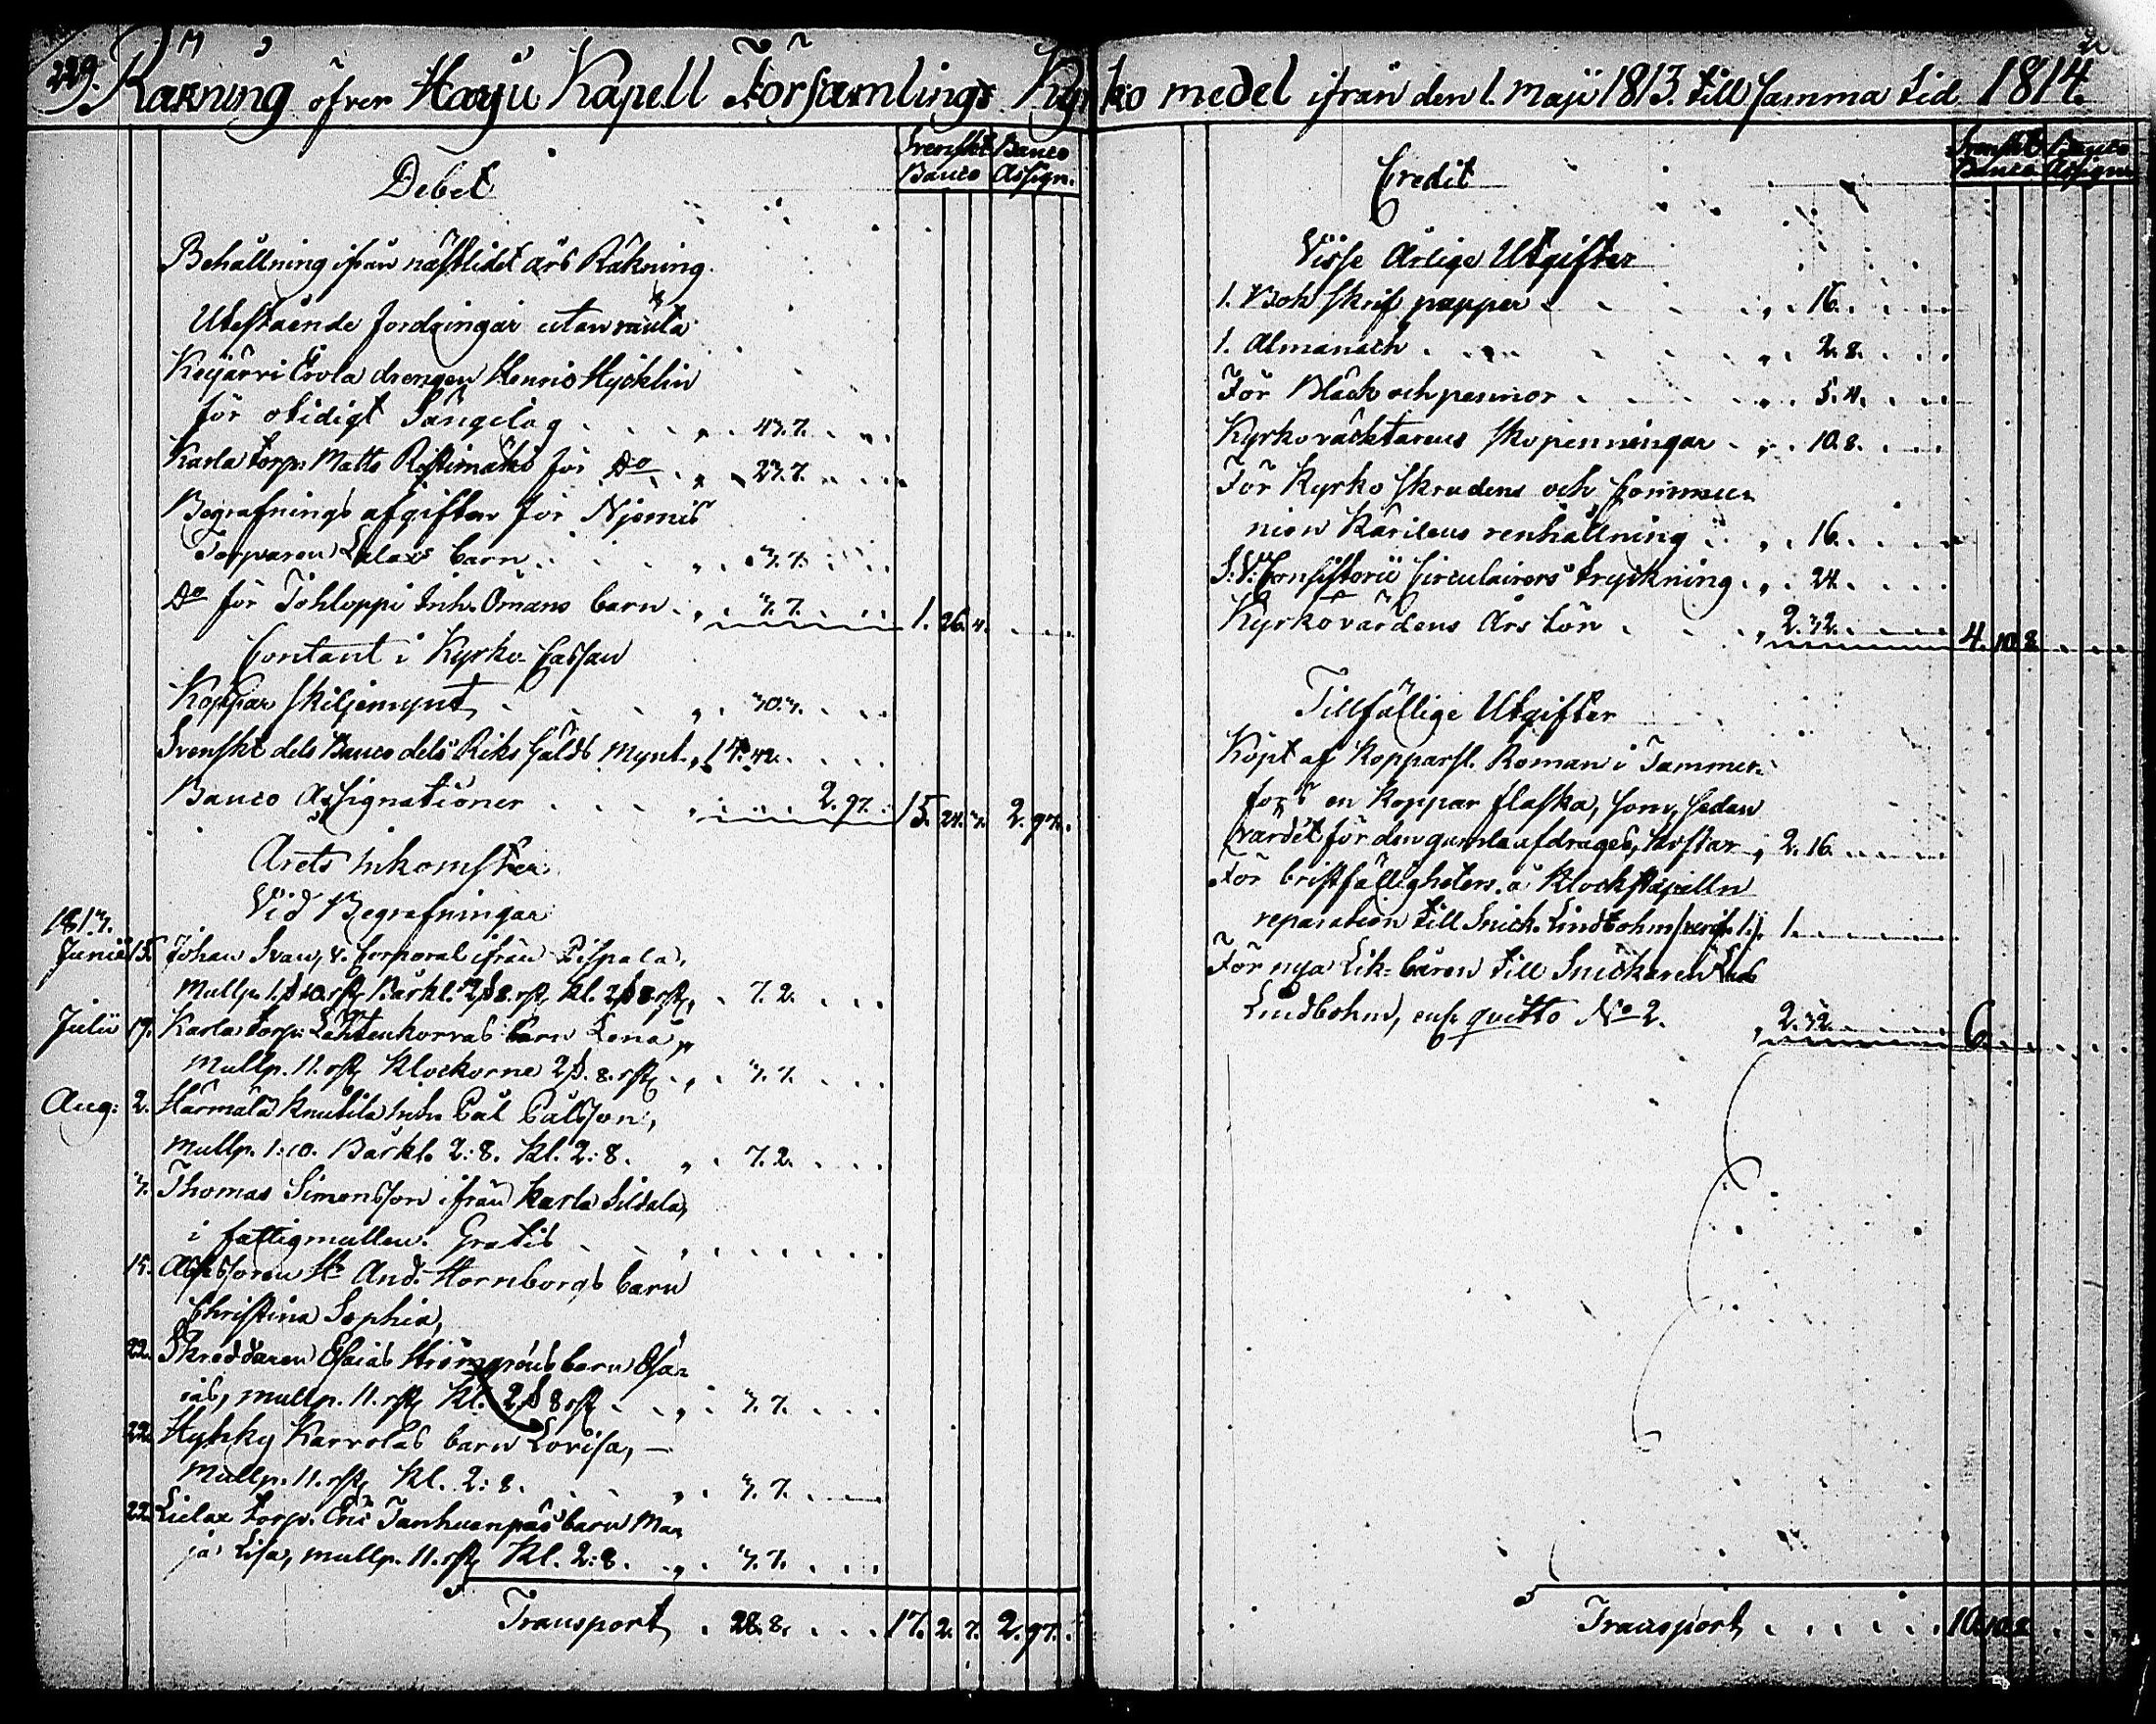 229. Räkning öfver Harju Kapell Församlings Kyrko medel ifrån den 1. Maji 1813. till samma tid 1814.
Debet
Svenskt Banco
Banco Assign.
Behållning ifrån nästlidet års Räkning.
Utestående fordringar utan ränta
Keijärvi Erola drengen Henric Hycklin
för otidigt Sängelag . . . „ . 43. 7. . „ .
Karla torp. Matts Rostimäki för Do . „ . 23. 7. . . .
Begrafnings afgiften för Njemis
Torparen Lalax barn . . . „ . 3. 7. . . .
Do för Tohloppi Inh. Ömans barn . „ . 3. 7. . . . 1. 26. 4. . . .
Contant i Kyrko Cassan
Koppar skiljemynt . . . „ . 30. 3. . . .
Svenskt dels Banco dels Riks Gälds Mynt . „ 14. 42. . . .
Banco Assignationer . . . „ . . . 2. 97. 15. 24. 3. 2. 97. .
Årets Inkomster
Vid Begrafningar
1813.
Junii 15. Johan Svan, v. Corporal ifrån Pispala,
Mullp. 1 ß 10. rst. Bårkl. 2 ß 8. rst. Kl. 2 ß 8. rst. . 7. 2. . . .
Julii 19. Karla torp: Lehtenkorvas barn Lena,
Mullp. 11. rst. Klockorne 2 ß. 8. rst. . „ . 3. 7. . . .
Aug: 2. Härmälä Knutila Inh. Pål Pålsson,
Mullp. 1:10. Bårkl. 2:8. Kl. 2:8. „ . 7. 2. . . .
3. Thomas Simonsson ifrån Karla Sildala,
i fattigmullen. Gratis . . „ . . . . .
15. Assessoren Hr And. Hornborgs barn
Christina Sophia,
22. Skreddaren Esaias Strömgrens barn Esa-
ias, mullp. 11. rst. Kl. 2 ß 8 rst . . „ . 3. 7. . . .
22. Hyhky Karvolas barn Lovisa, —
Mullp. 11. rst. Kl. 2:8. . . „ . 3. 7. . . .
22. Lielax torp. Eric Tanhuanpäs barn Ma-
ja Lisa, mullp. 11. rst. Kl. 2:8. . „ . 3. 7. . . .
Transport . 28. 8. . . . 17. 2. 7. 2. 97. .
Credit
Svenskt Banco
Banco Assign.
Visse Årlige Utgifter
1. Bok skrif papper . . . „ . 16. . . .
1. Almanach . . . „ . 2. 8. . . .
För Bläck och pennor . . . „ . 5. 4. . . .
Kyrkoväcktarens skopenningar . „ . 10. 8. . . .
För Kyrko skrudens och Commu-
nion Kärilens renhållning . „ . 16. . . .
S: V: Consistorii Circulairers tryckning . „ . 24. . . .
Kyrkovärdens Års lön . . . „ 2. 32. . . . 4. 10. 8. . . .
Tillfällige Utgifter
Köpt af Kopparsl. Roman i Tammer-
fors en Koppar flaska, som, sedan
värdet för den gamla afdragits, kostar „ 2. 16. . . .
För bristfälligheters å Klockstapeln
reparation till Snick. Lindbohm (verif. 1.) „ 1. . . .
För nya Lik-båren till Snickaren
Lindbohm, enl. quitto No 2. „ 2. 32. . . . 6. . . .
Transport . . . . . 10. 10. 8. . . .